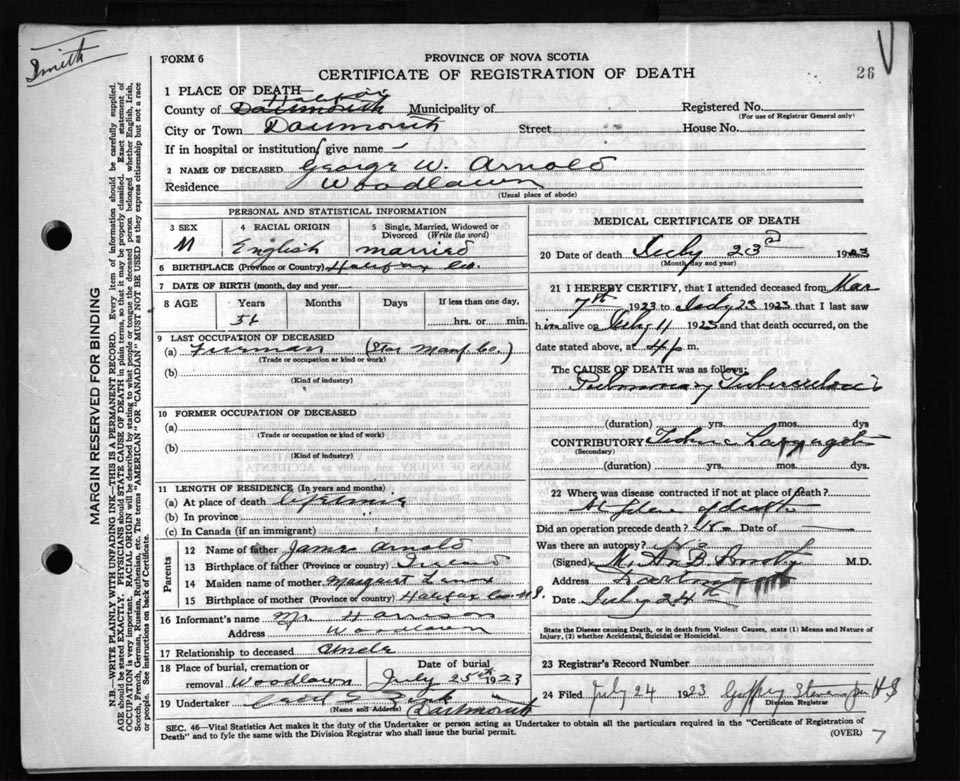 Smith
FORM 6
PROVINCE OF NOVA SCOTIA
CERTIFICATE OF REGISTRATION OF DEATH
26
1 PLACE OF DEATH—
County of Dartmouth Halifax Municipality of
Registered No.
(For use of Registrar General only)
City or Town Dartmouth Street House No.
If in hospital or institution give name
2 NAME OF DECEASED George W. Arnold
Residence Woodlawn
(Usual place of abode)
PERSONAL AND STATISTICAL INFORMATION
3 SEX 4 RACIAL ORIGIN 5 Single, Married, Widowed or Divorced (Write the word)
M English married
6 BIRTHPLACE (Province or Country) Halifax Co.
7 DATE OF BIRTH (month, day and year)
8 AGE Years Months Days If less than one day,
hrs. or min.
9 LAST OCCUPATION OF DECEASED
(a) Fireman (Star Manf Co.)
(Trade or occupation or kind or work)
(b)
(Kind of industry)
10 FORMER OCCUPATION OF DECEASED
(a)
(Trade or occupation or kind of work)
(b)
(Kind of industry)
11 LENGTH OF RESIDENCE (In years and months)
(a) At place of death Lifetime
(b) In province "
(c) In Canada (if an immigrant) "
Parents
12 Name of father James Arnold
13 Birthplace of father (Province or country)
14 Maiden name of mother Margaret Lenox
15 Birthplace of mother (Province or country) Halifax Co. N.S.
16 Informant's name Mr. Harrison
Address Woodlawn
17 Relationship to deceased Uncle
18 Place of burial, cremation or removal Woodlawn
Date of burial July 25th 1923
19 Undertaker
(Name and Address) Dartmouth
MEDICAL CERTIFICATE OF DEATH
20 Date of death July 23d 1923
(Month day and year)
21 I HEREBY CERTIFY, that I attended deceased from Mar
7th 1923 to July 23 1923 that I last saw
him alive on July 11 1923 and that death occurred, on
date stated above, at 4 p m.
The CAUSE OF DEATH was as follows:
Pulmonary Tuberculosis
(duration) yrs. mos. dys
CONTRIBUTORY
(Secondary)
(duration) yrs. mos. dys.
22 Where was disease contracted if not at place of death?
At place of death
Did an operation precede death? No Date of
Was there an autopsy? No
(Signed) M.D.
Address Dartmouth
Date July 24th
State the Disease causing Death, or in death from Violent Causes, state (1) Means and Nature of Injury, (2) whether Accidental, Suicidal or Homicidal.
23 Registrar's Record Number
24 Filed July 24 1923
Division Registrar
SEC. 46—Vital Statistics Act makes it the duty of the Undertaker or person acting as Undertaker to obtain all the particulars required in the "Certificate of Registration of
Death" and to fyle the same with the Division Registrar who shall issue the burial permit.
(OVER) 7
MARGIN RESERVED FOR BINDING
N.B.—WRITE PLAINLY WITH UNFADING INK—THIS IS A PERMANENT RECORD. Every item of information should be carefully supplied.
AGE should be stated EXACTLY. PHYSICIANS should STATE CAUSE OF DEATH in plain terms, so that it may be properly classified. Exact statement of
OCCUPATION is very important. RACIAL ORIGIN will be described by stating to what people or tongue the deceased person belonged whether English, Irish,
Scotch, French, German, Russian, Ruthenian, etc. The terms "AMERICAN" OR "CANADIAN" MUST NOT BE USED as they express citizenship but not a race
or people. See instructions on back of Certificate.